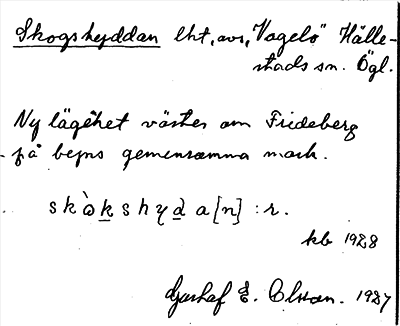 Skogshyddan lht, avs. "Vagelö" Hälle-
stads sn. Ögl.
Ny lägehet väster om Frideberg
på byns gemensamma mark.
skògkshyd a[n] :r.
kb 1928
E. Olsson. 1927